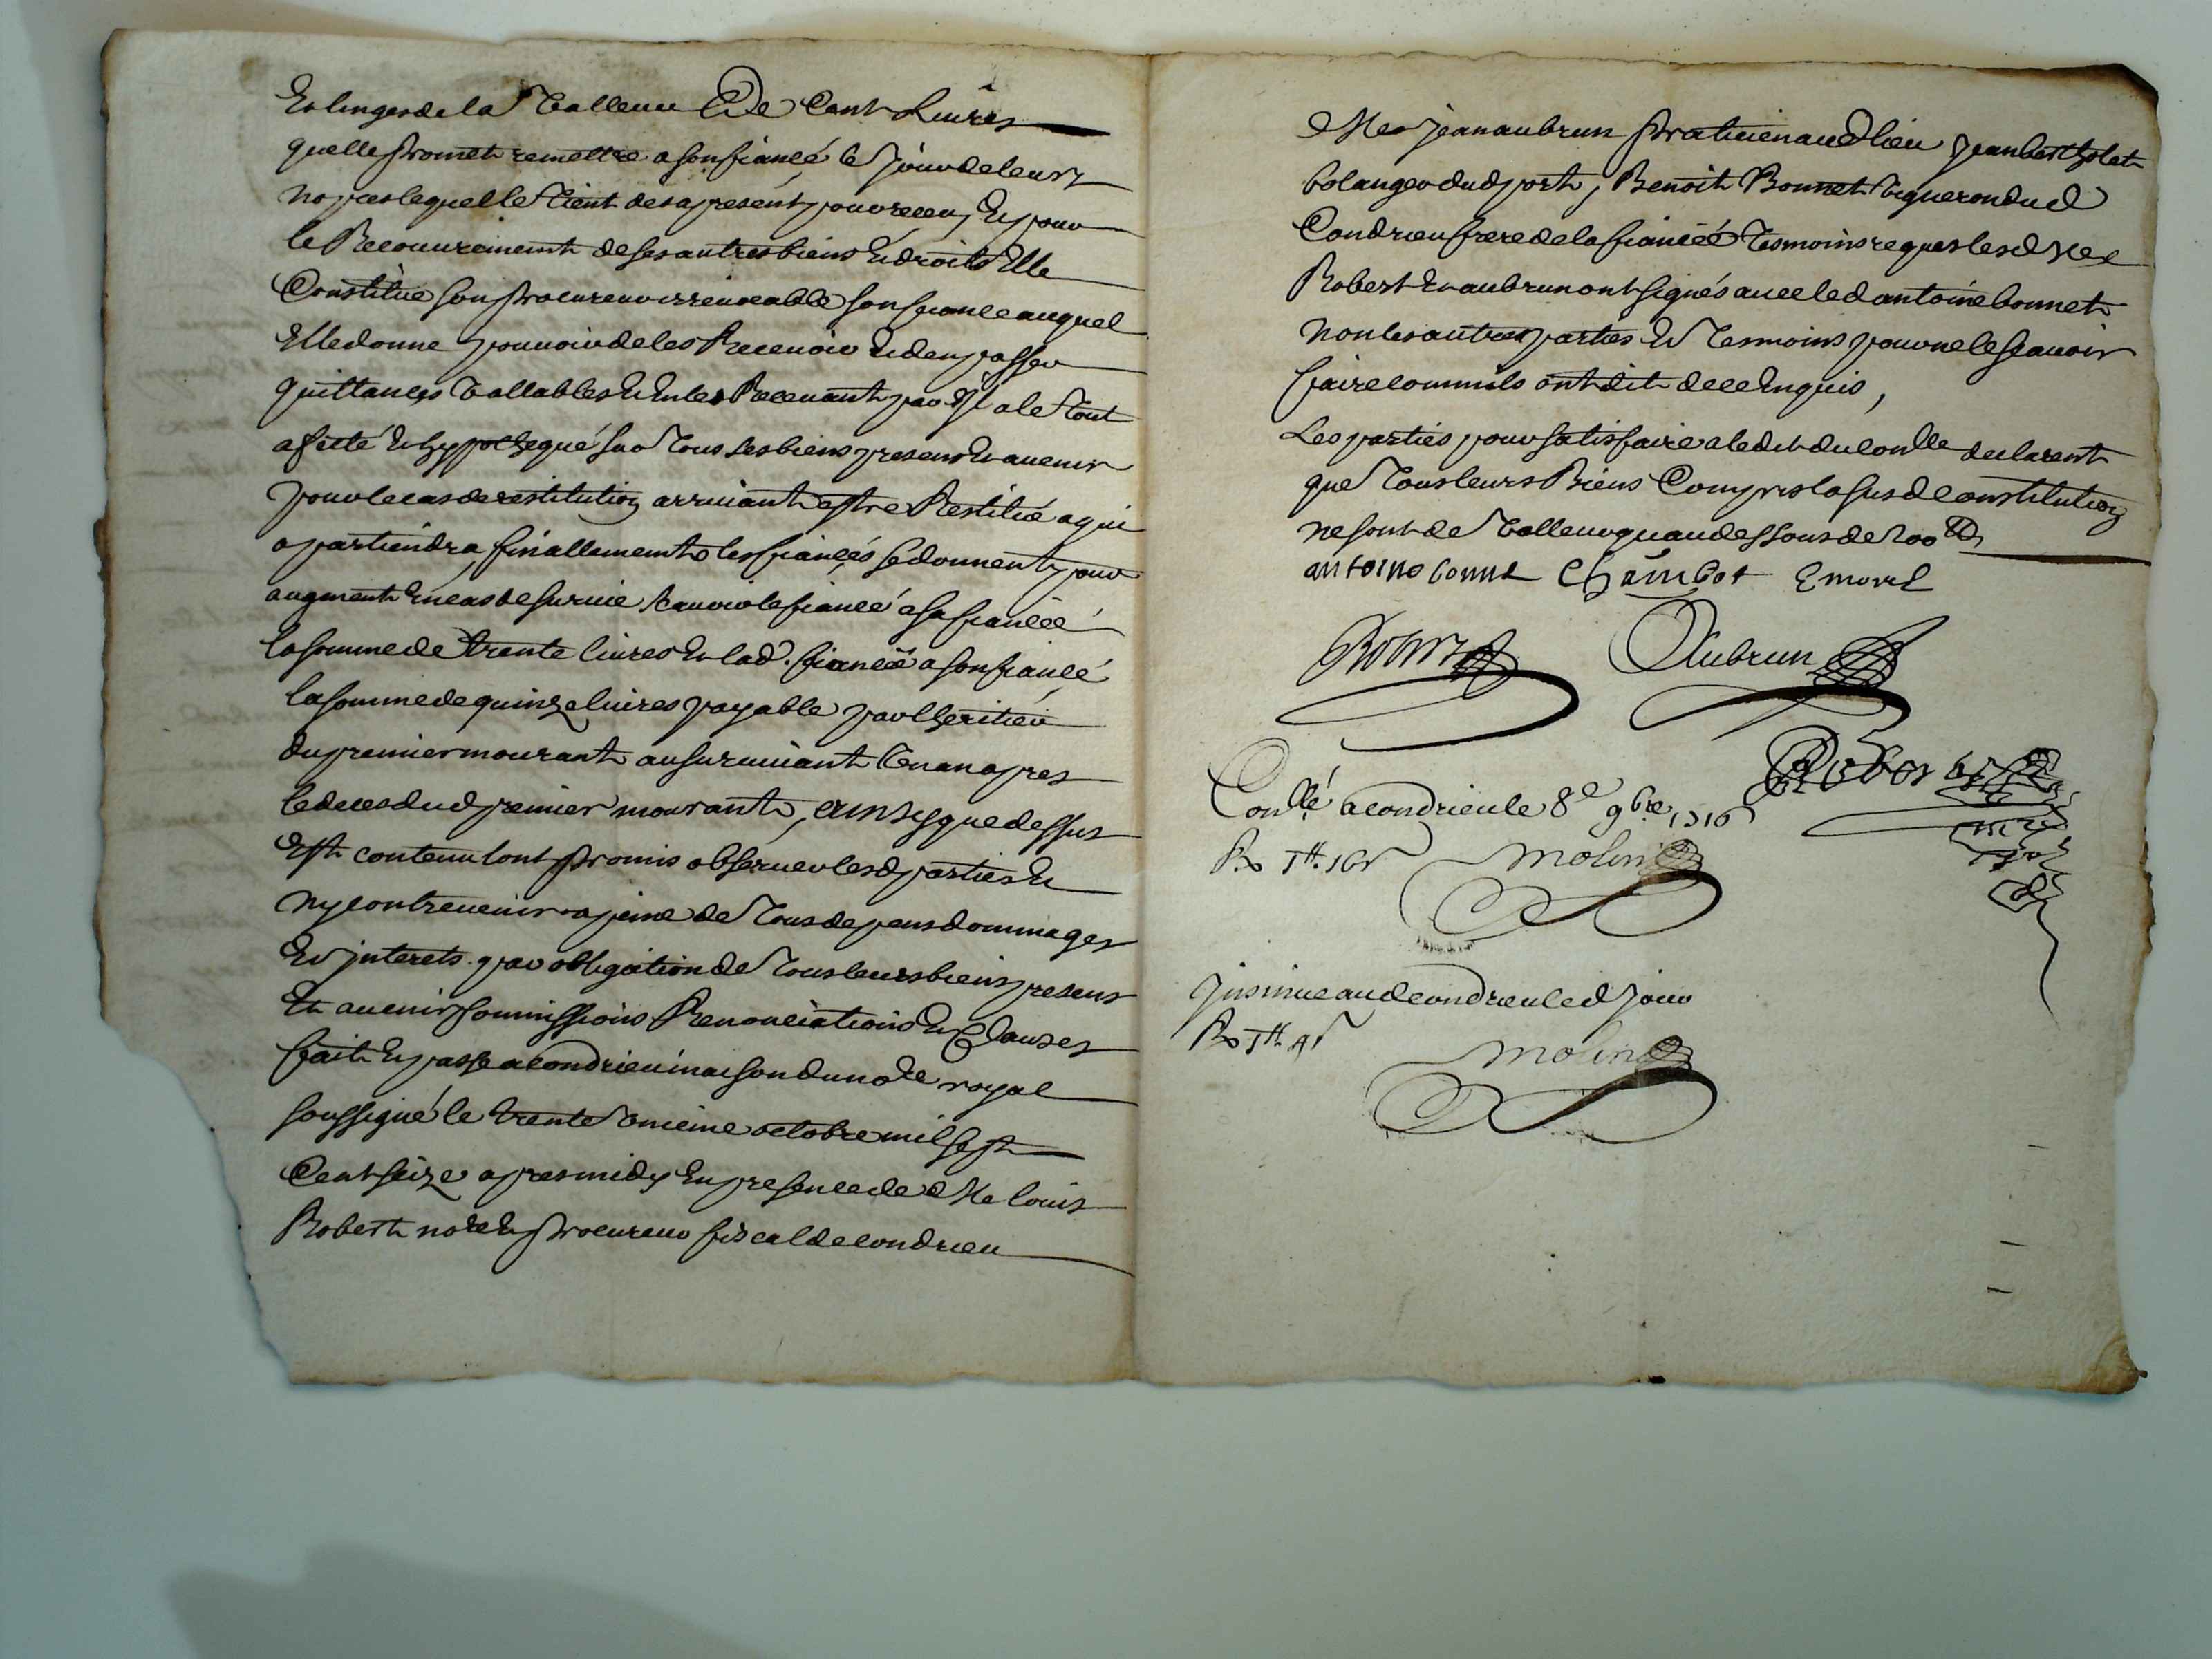 Et linges de la Valleur De Cent Livres
quelle promet remettre a son fiancé le Jour de leurs
nopces lequel le tient des a present pour receu, Et pour
le Recouvrement de ses autres biens Et droits Elle
Constitue son procureur irrevocable son fiance auquel
Elle donne pouvoir de les Recevoir Et den passer
quittances Vallables Et En les Recevant par Il a le tout
afetté Et hypothequé sur tous ses biens presens Et avenir
pour le cas de restitution arrivant estre Restitué a qui
apartiendra, finallement les fiancés se donnent pour
augment En cas de survie scavoir le fiancé a sa fiancéé
la somme de trente livres Et lad. fiancéé a son fiancé
la somme de quinze livres payable par lheritier
du premier mourant au survivant Un an apres
le deces dud premier mourant, ainsy que dessus
Est contenu lont promis observer lesd parties Et
ny contrevenir a peine de tous depens dommages
Et interets par obligation de tous leurs biens presens
Et avenir soumissions Renonciations Et Clauses
fait Et passé a condrieu maison du nore royal
soussigné le trente onieme octobre mil sept
Cent seize apres midy En presence de Me louis
Robert nore Et procureur fiscal de condrieu
Me jean aubrun praticien aud lieu jean bertholet
bolanger dud port, Benoit Bonnet vigneron dud
Condrieu frere de la fiancéé tesmoins requis lesd Mes
Robert Et aubrun ont signés avec led antoine bonnet
non les autres parties Et tesmoins pour ne le scavoir
faire comm ils ont dit de ce Enquis,
Les parties pour satisfaire a ledit du conlle declarent
que tous leurs Biens Compris la susd constitution
ne sont de Valleur quau dessous de 200 ll
antoine bonnet Chambot Emorel
Robert Aubrun
Robert
Conllé a condrieu le 8e 9bre 1716
R. 1ll 16s molin
jnsinue aud condrieu led jour
R. 1ll 4s
molin